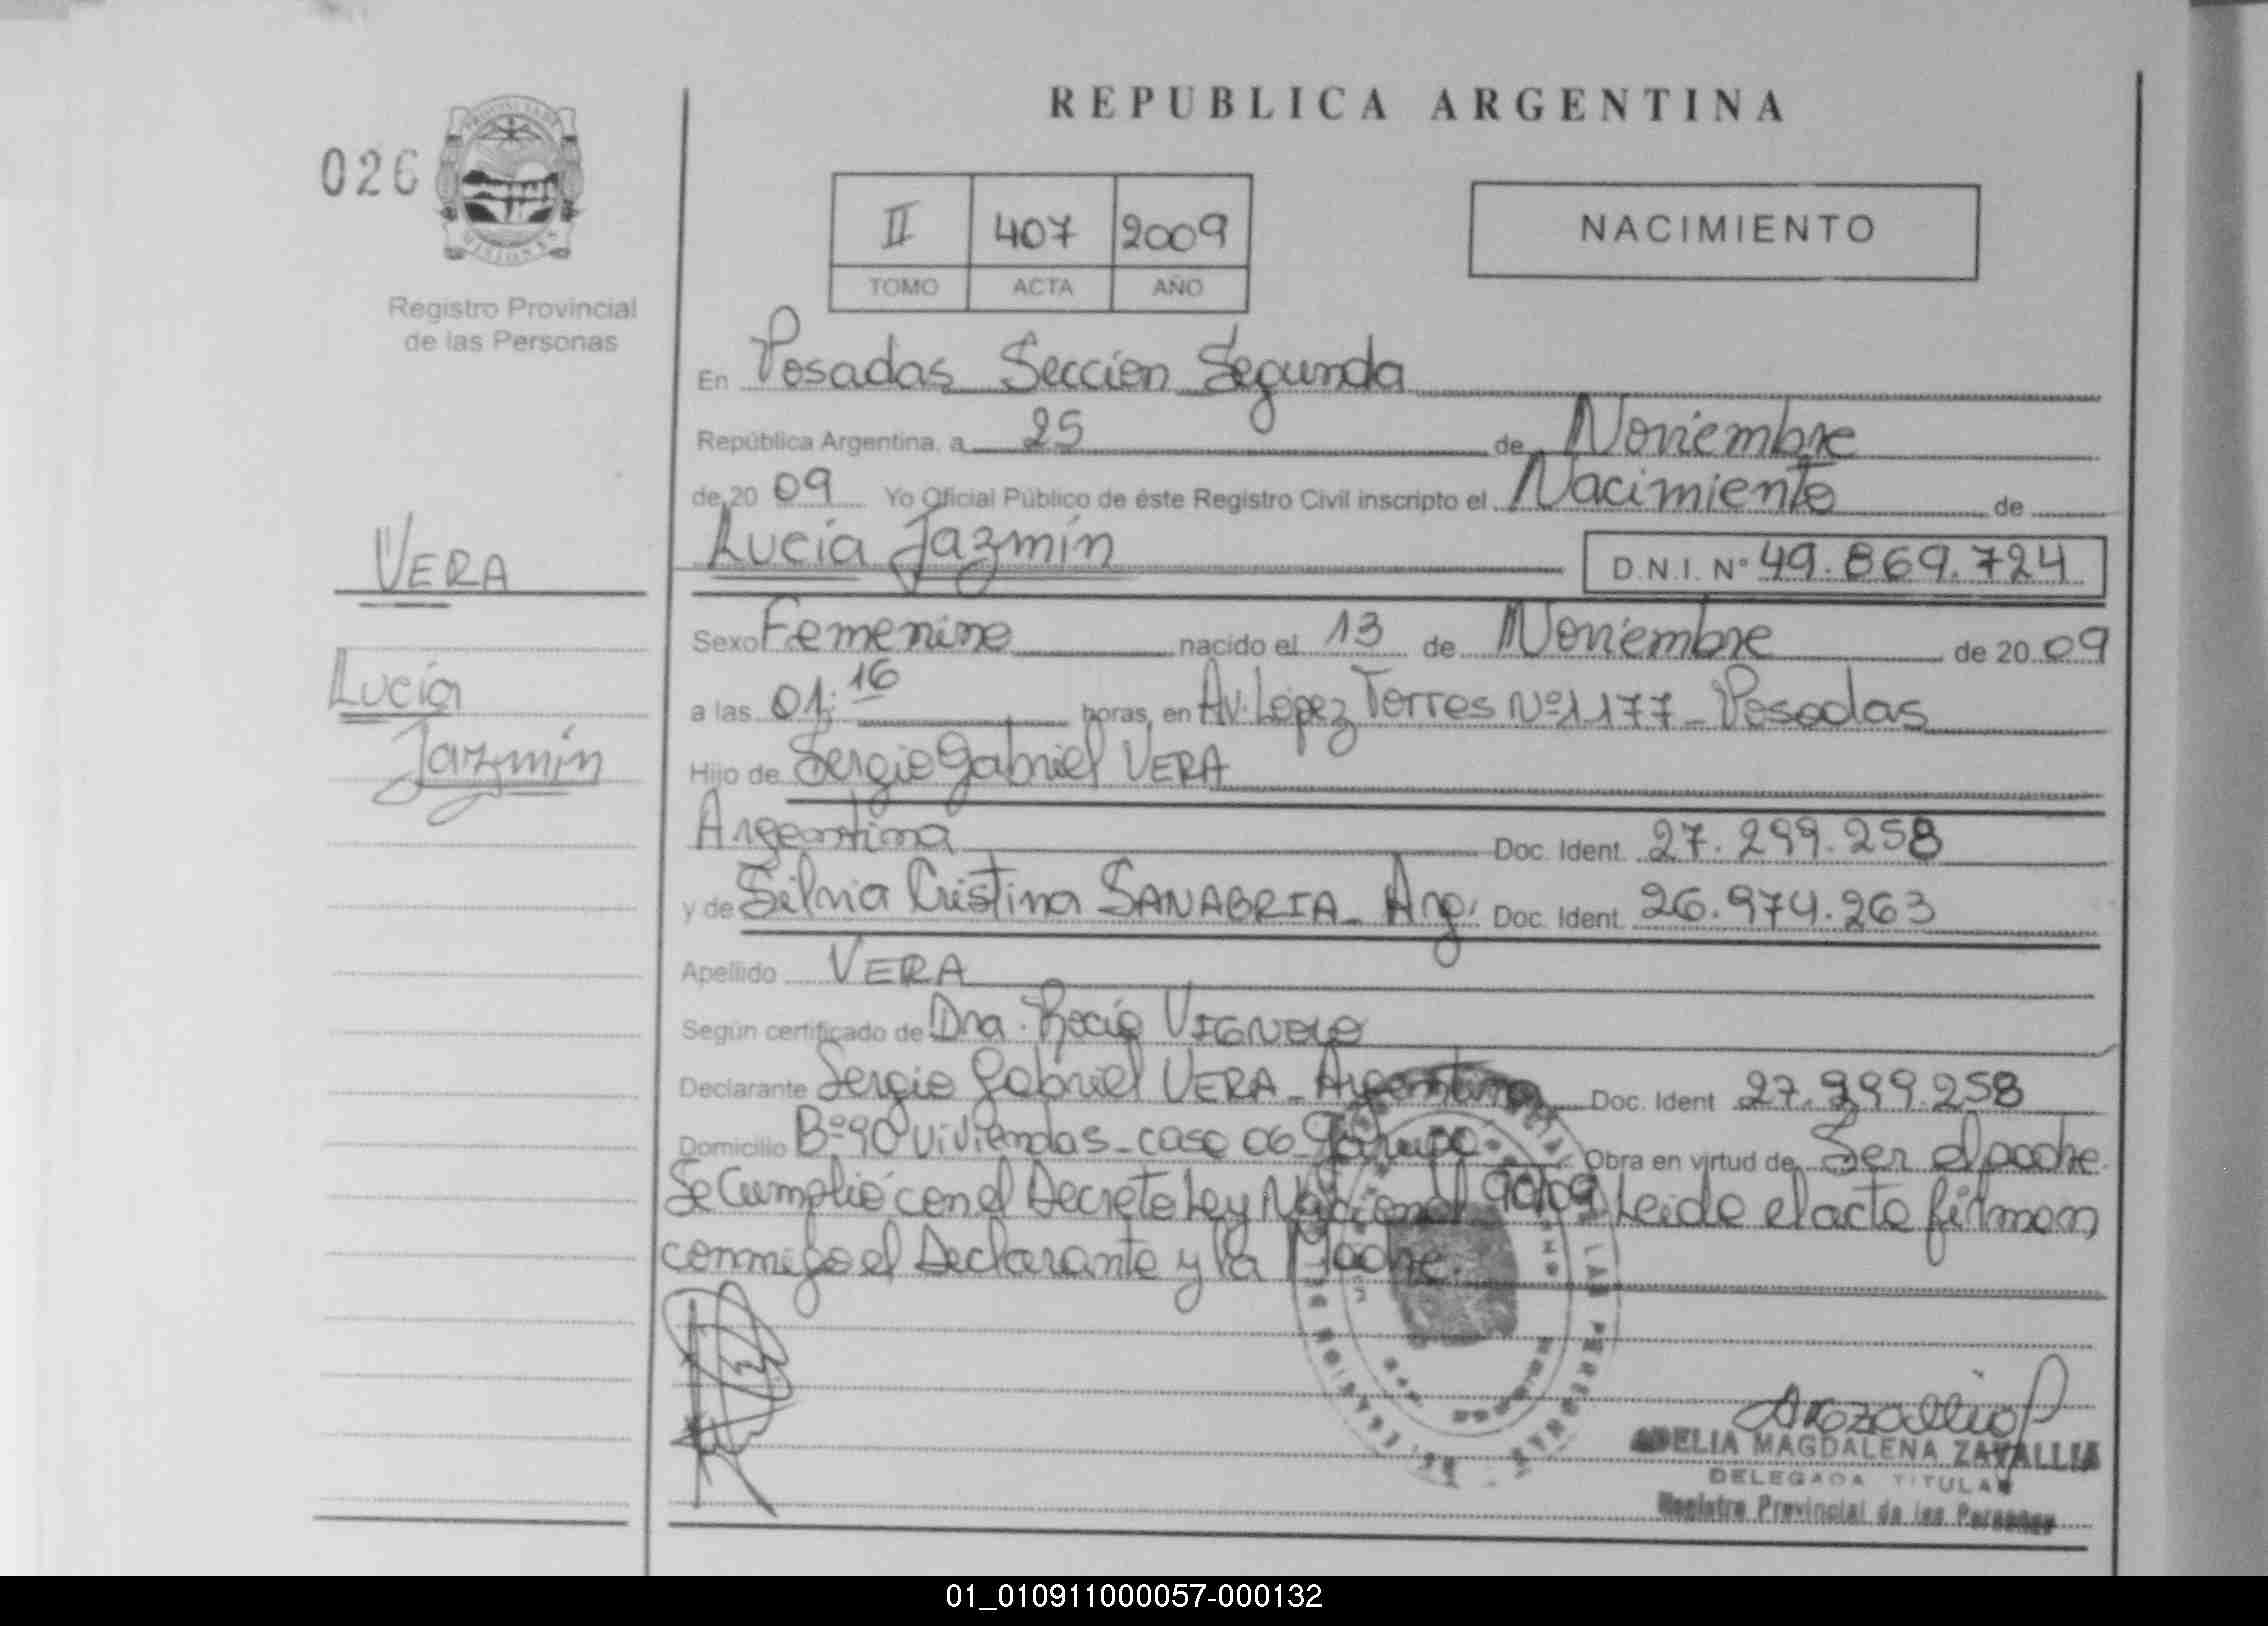 REPUBLICA ARGENTINA
026
PROVINCIA DE
MISIONES
Registro Provincial
de las Personas
II 407 2009
TOMO ACTA AÑO
NACIMIENTO
En Posadas Sección Segunda
República Argentina, a 25 de Noviembre
de 20 09 Yo Oficial Público de éste Registro Civil inscripto el Nacimiento de
Lucía Jazmín D.N.I. Nº 49.869.724
VERA
Lucía
Jazmín
Sexo Femenino nacido el 13 de Noviembre de 20 09
a las 01:16 horas, en Av. López Torres Nº 1177 - Posadas
Hijo de Sergio Gabriel VERA
Argentina Doc. Ident. 27.299.258
y de Silvia Cristina SANABRIA - Arg. Doc. Ident. 26.974.263
Apellido VERA
Según certificado de Dra. Rocío VIGNOLO
Declarante Sergio Gabriel VERA - Argentino Doc. Ident 27.299.258
Domicilio Bº 90 viviendas - casa 06 Obra en virtud de Ser el padre
Se Cumplió con el Decreto Ley Nacional Leida el acta firman
conmigo el Declarante y la Madre.
ADELIA MAGDALENA ZAVALLIA
DELEGADA TITULAR
Registro Provincial de las Personas
01_010911000057-000132